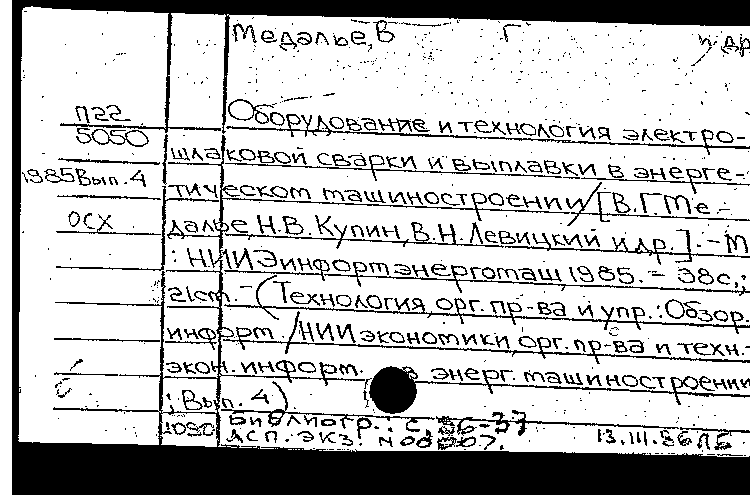 Медалье, В Г и др
П22
5050
1985 Вып. 4
ОСХ
Оборудование и технология электро-
шлаковой сварки и выплавки в энерге-
тическом машиностроении / [В.Г. Ме-
далье, Н.В. Купин, В.Н. Левицкий и др.]. - М
: НИИЭинформэнергомаш, 1985. - 38 с.;
21 см. - (Технология, орг. пр-ва и упр.: Обзор.
информ. / НИИ экономики, орг. пр-ва и техн.-
экон. информ. в энерг. машиностроении
; Вып. 4)
Библиогр.: с. 36-37
АСП. ЭКЗ. 13.III.86 ЛБ